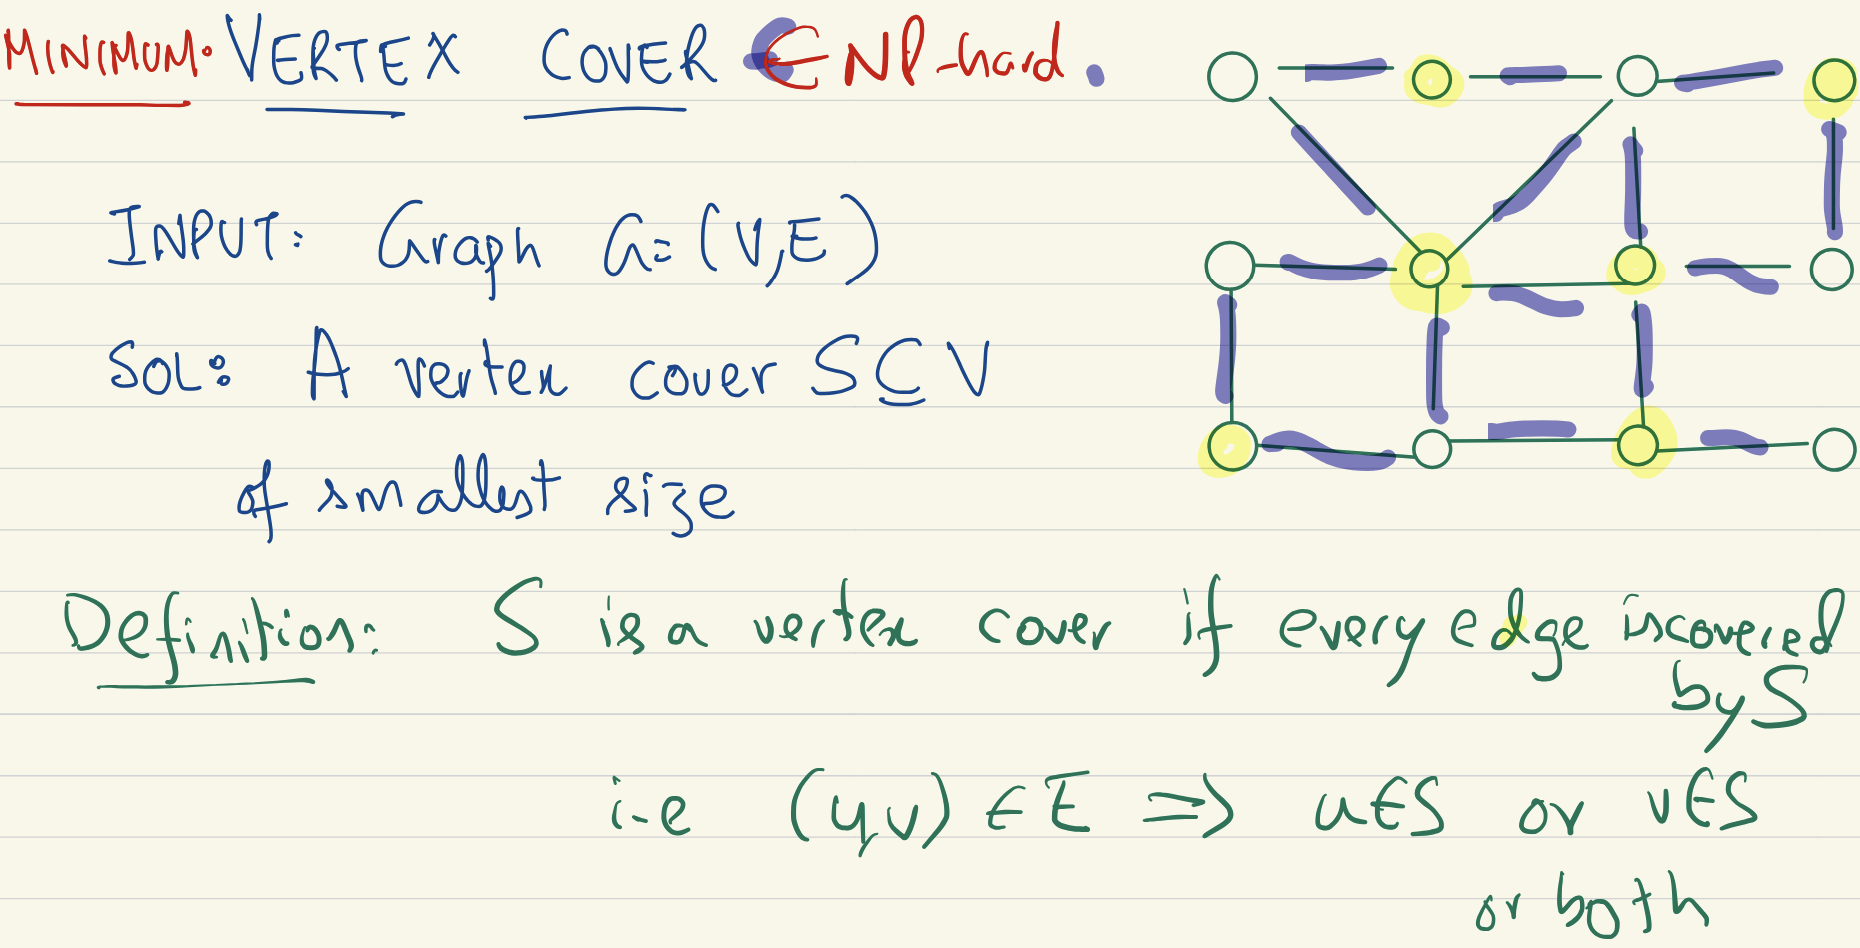 MINIMUM: VERTEX COVER ∈ NP-hard.
INPUT: Graph G=(V,E)
SOL: A vertex cover S ⊆ V
of smallest size
Definition: S is a vertex cover if every edge is covered
by S
i.e (u,v) ∈ E ⇒ u∈S or v∈S
or both